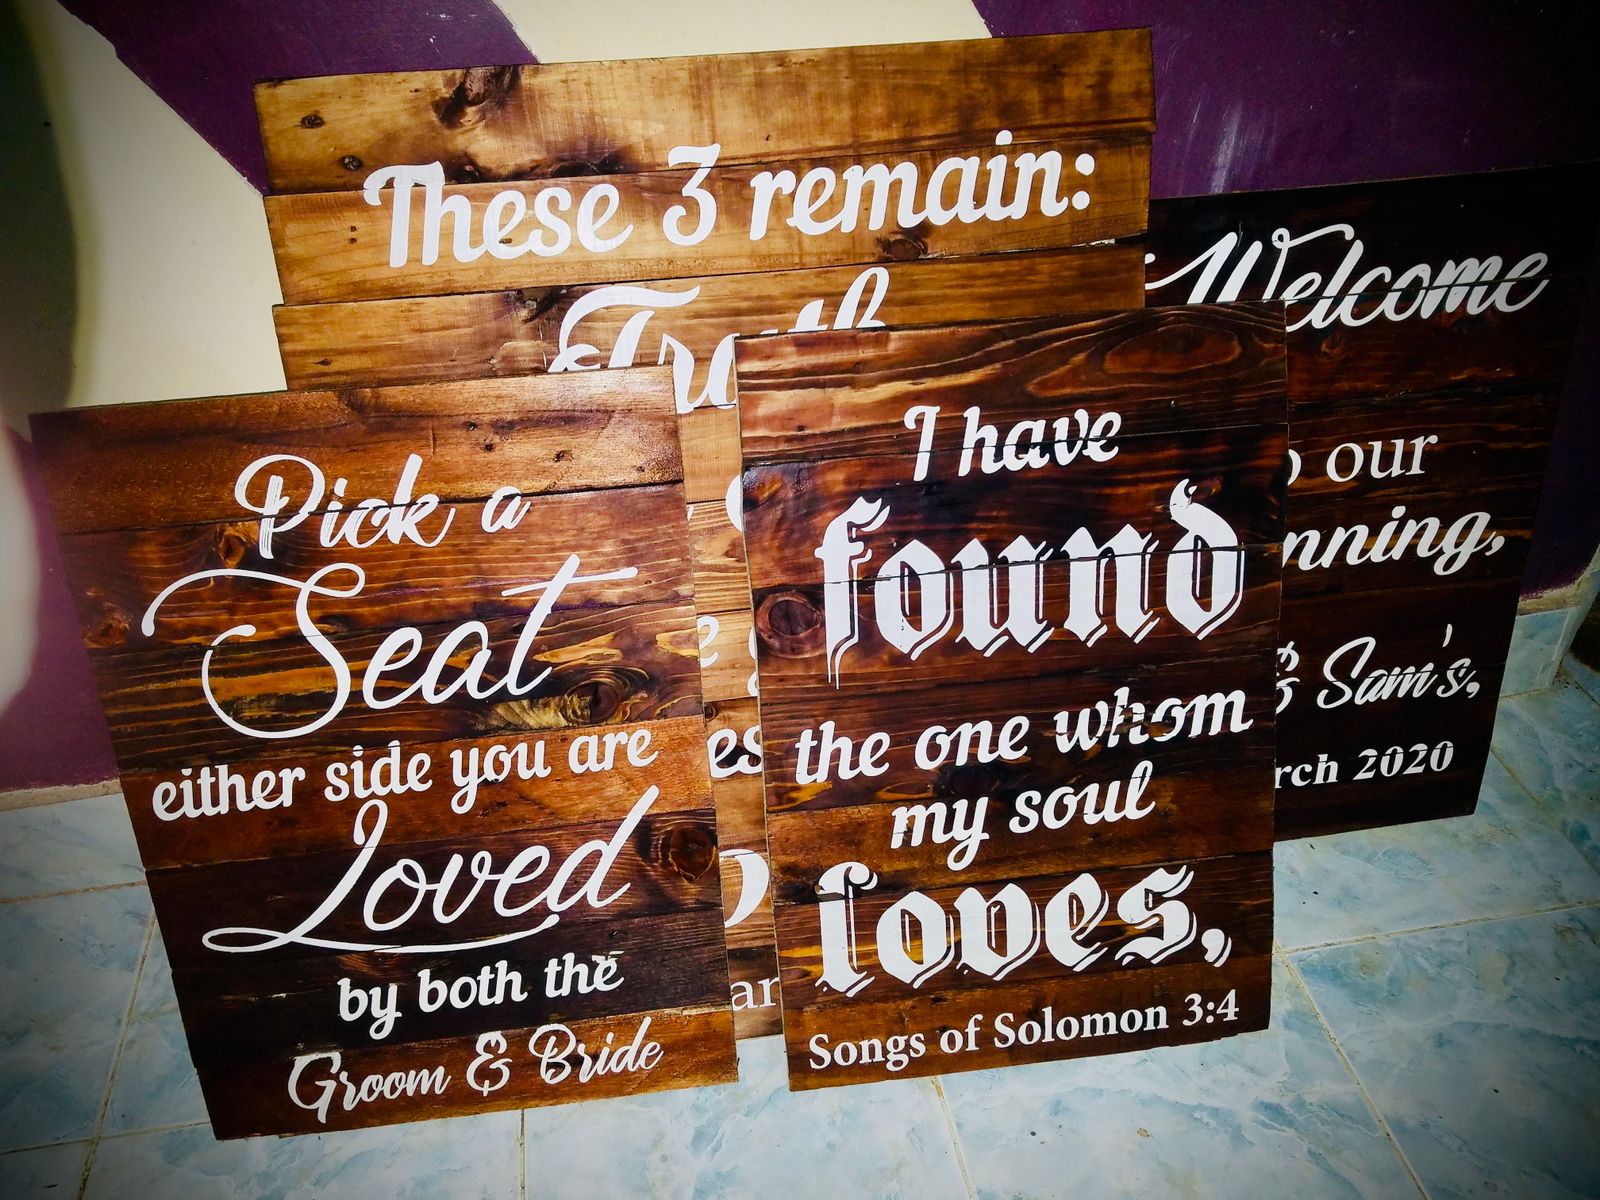 These 3 remain:
Pick a
Seat
either side you are
Loved
by both the
Groom & Bride
I have
found
the one whom
my soul
loves,
Songs of Solomon 3:4
Welcome
our
& Sam's,
2020